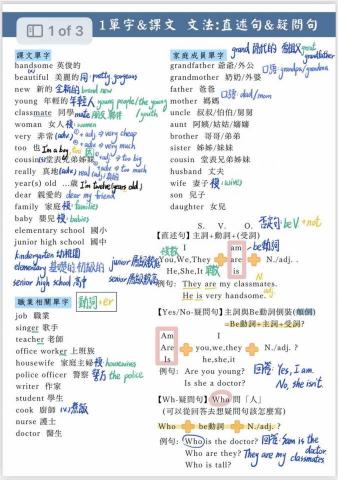 1 of 3
1單字&課文 文法:直述句&疑問句
課文單字
handsome 英俊的
beautiful 美麗的 同: pretty gorgeous
new 新的 全新的 brand new
young 年輕的 年輕人 young people/the young /youth
classmate 同學
woman 女人 複: women
very 非常(adv.) + adj → very cheap
too 也
cousin 堂表兄弟姊妹
really 真地(adv.)
year(s) old …歲 I'm twelve (years old)
dear 親愛的 dear my friend
family 家庭 複: families
baby 嬰兒 複: babies
elementary school 國小
junior high school 國中
kindergarten 幼稚園
elementary 基礎的 初級的
senior high school 高中
職業相關單字
動詞+er
job 職業
singer 歌手
teacher 老師
office worker 上班族
housewife 家庭主婦 複: housewives
police officer 警察 警方 the police
writer 作家
student 學生
cook 廚師 (v.)煮飯
nurse 護士
doctor 醫生
家庭成員單字
grandfather 爺爺/外公
grandmother 奶奶/外婆
口語: grandpa/grandma
father 爸爸
mother 媽媽
口語: dad/mom
uncle 叔叔/伯伯/舅舅
aunt 阿姨/姑姑/嬸嬸
brother 哥哥/弟弟
sister 姊姊/妹妹
cousin 堂表兄弟姊妹
husband 丈夫
wife 妻子 複: (wives)
son 兒子
daughter 女兒
S. V. O. 否定句: beV + not
【直述句】主詞+動詞+(受詞)
I am be動詞
You,We,They are N./adj. .
He,She,It is
例句: They are my classmates.
He is very handsome.
【Yes/No-疑問句】主詞與Be動詞倒裝(顛倒)
=Be動詞+主詞+受詞?
Am I
Are you,we,they N./adj. ?
Is he,she,it
例句: Are you angry? 回答: Yes, I am.
Is she a doctor? No, she isn't.
【Wh-疑問句】Who 問「人」
(可以從回答去想疑問句該怎麼寫)
Who be動詞 N./adj. ?
例句: Who is the doctor? 回答: Sam is the doctor.
Who are they? They are my classmates.
Who is tall?